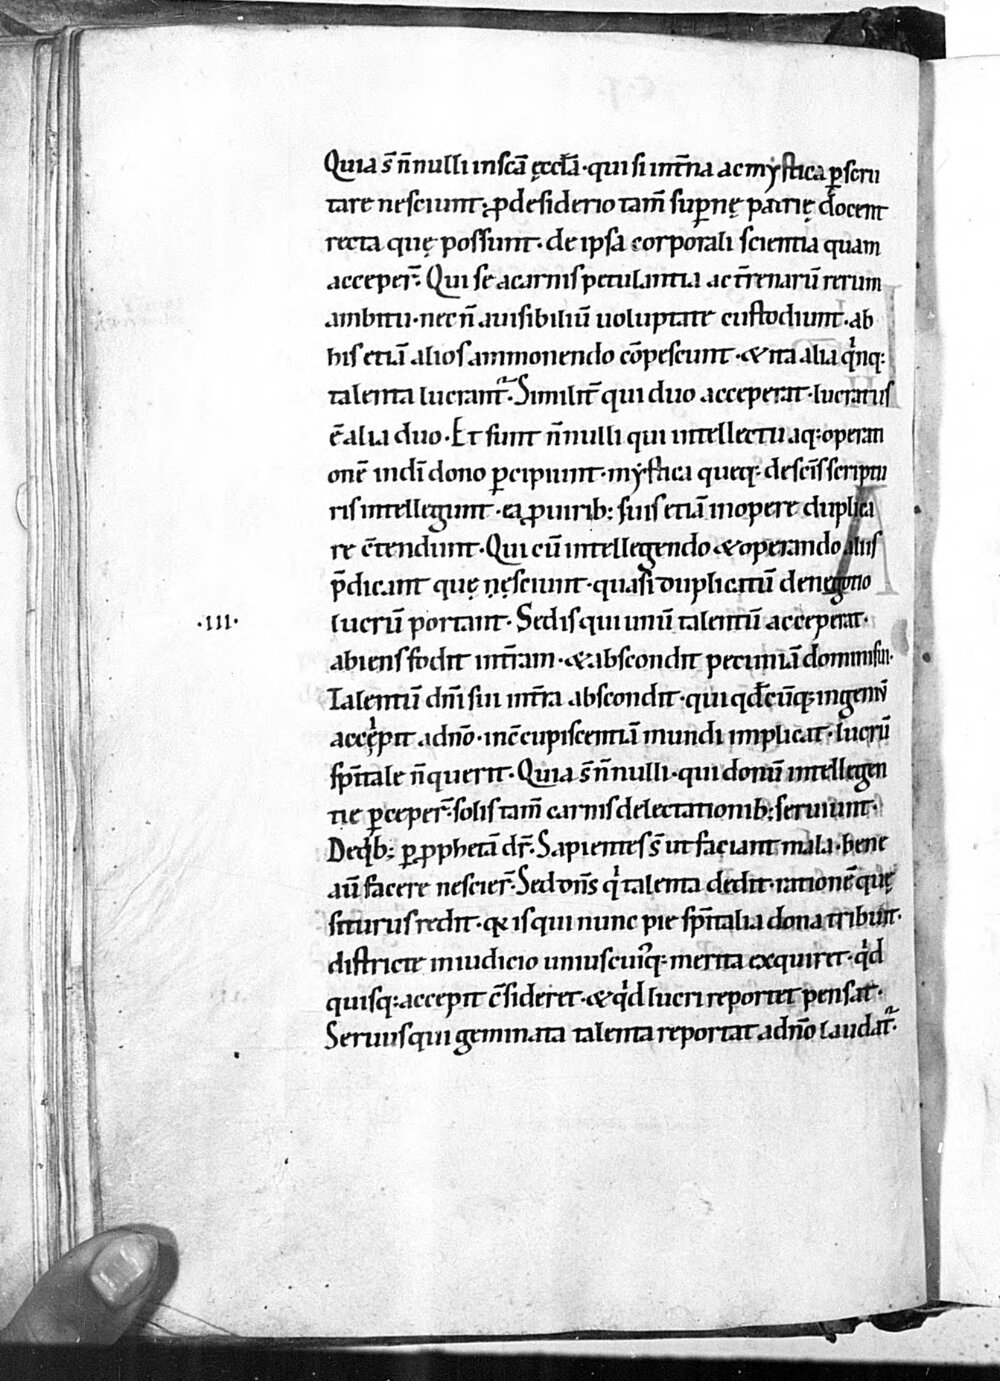 Quia s̄ n̄nulli in sc̄a ęccl̄a · qui si int̄na ac mẏstica ꝑscru
tare nesciunt · ꝓ desiderio tam̄ suꝑnę patrię docent
recta quę possunt · de ipsa corporali scientia quam
acceper̄ · Qui se a carnis petulantia ac t̄renarū rerum
ambitu · nec n̄ a uisibiliū uoluptate custodiunt · ab
his etiā alios ammonendo cōpescunt · & ita alia qͥnq:
talenta lucrant᷑ · Similit̄ qui duo acceperat · lucratus
ē alia duo · Et sunt n̄nulli qui intellectu atq: operati
onē indī dono ꝑcipiunt · mẏstica queq: de sc̄is scriptu
ris intellegunt · ea ꝓ uirib: suis etiā in opere duplica
re c̄tendunt · Qui cū intellegendo & operando aliis
p̄dicant quę nęsciunt · quasi duplicatū de negotio
·III· lucrū portant · Sed is qui unū talentū acceperat ·
abiens fodit int̄ram · & abscondit pecuniā domini sui ·
Talentū dn̄i sui in t̄ra abscondit · qui qd̄cūq; ingeniū
accępit a dn̄o · in c̄cupiscentiā mundi implicat · lucrū
sp̄itale n̄ querit · Quia s̄ n̄nulli · qui donū intellegen
tie ꝑceper̄ · solis tam̄ carnis delectationib: seruiunt ·
De qͥb: ꝑ ꝓphetā dr̄ · Sapientes s̄ ut faciant mala · bene
aū facere nescier̄ · Sed dn̄s qͥ talenta dedit · rationē quę
siturus redit · q̨ is qui nunc pie sp̄italia dona tribuit ·
districte in iudicio uniuscuiꝰq: merita exquiret · qͥd
quisq: accepit c̄sideret · & qͥd lucri reportet pensat ·
Seruus qui geminata talenta reportat a dn̄o laudat᷑ ·